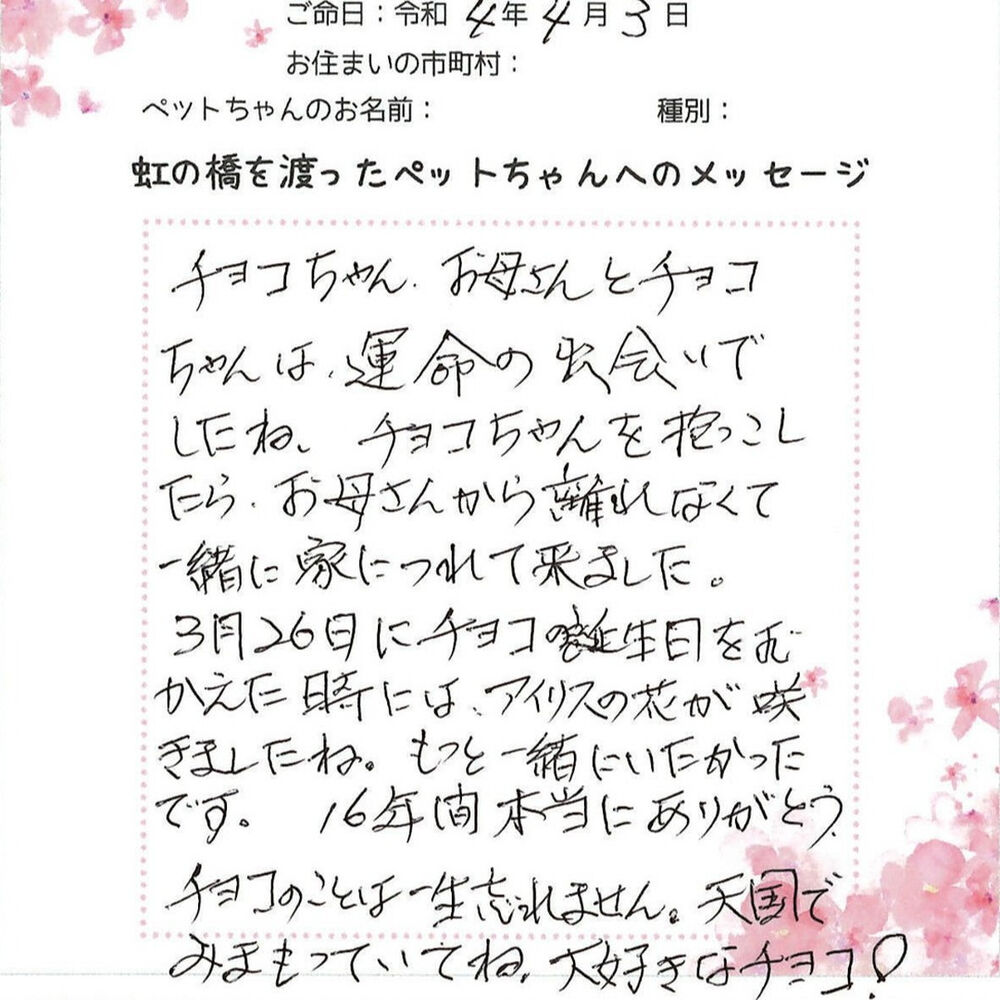 ご命日：令和 4年 4月 3日
お住まいの市町村：
ペットちゃんのお名前： 種別：
虹の橋を渡ったペットちゃんへのメッセージ
チョコちゃん、お母さんとチョコ
ちゃんは、運命の出会いで
したね、チョコちゃんを抱っこし
たら、お母さんから離れなくて
一緒に家につれて来ました。
3月26日にチョコの誕生日をむ
かえた時には、アイリスの花が咲
きましたね。もっと一緒にいたかった
です。16年間本当にありがとう
チョコのことは一生忘れません。天国で
みまもっていてね、大好きなチョコ!